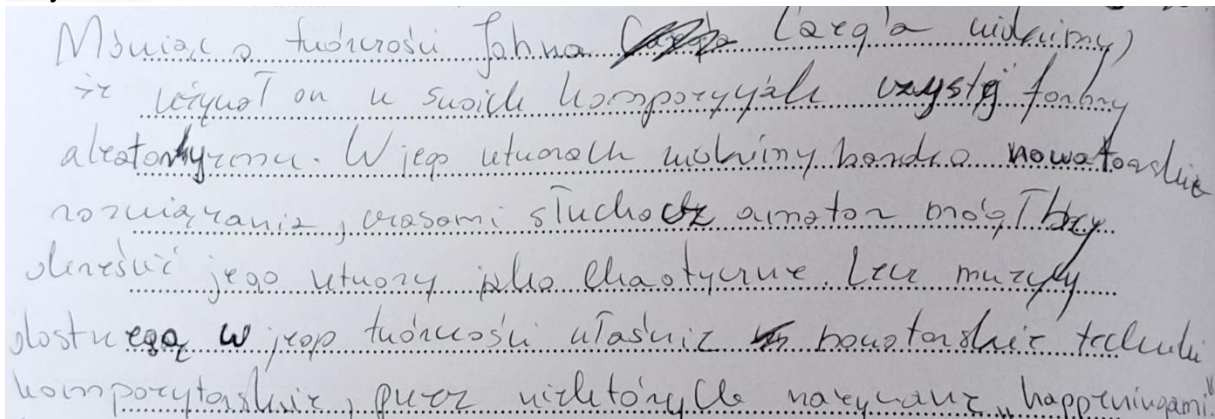 Mówiąc o twórczości Johna Carg'a widzimy,
że używał on w swoich kompozycjach czystej formy
aleatoryzmu. W jego utworach widzimy bardzo nowatorskie
rozwiązania, czasami słuchacz amator mógłby
określić jego utwory jako chaotyczne. Lecz muzycy
dostrzegą w jego twórczości właśnie nowatorskie techniki
kompozytorskie, przez niektórych nazywane "happeningami"